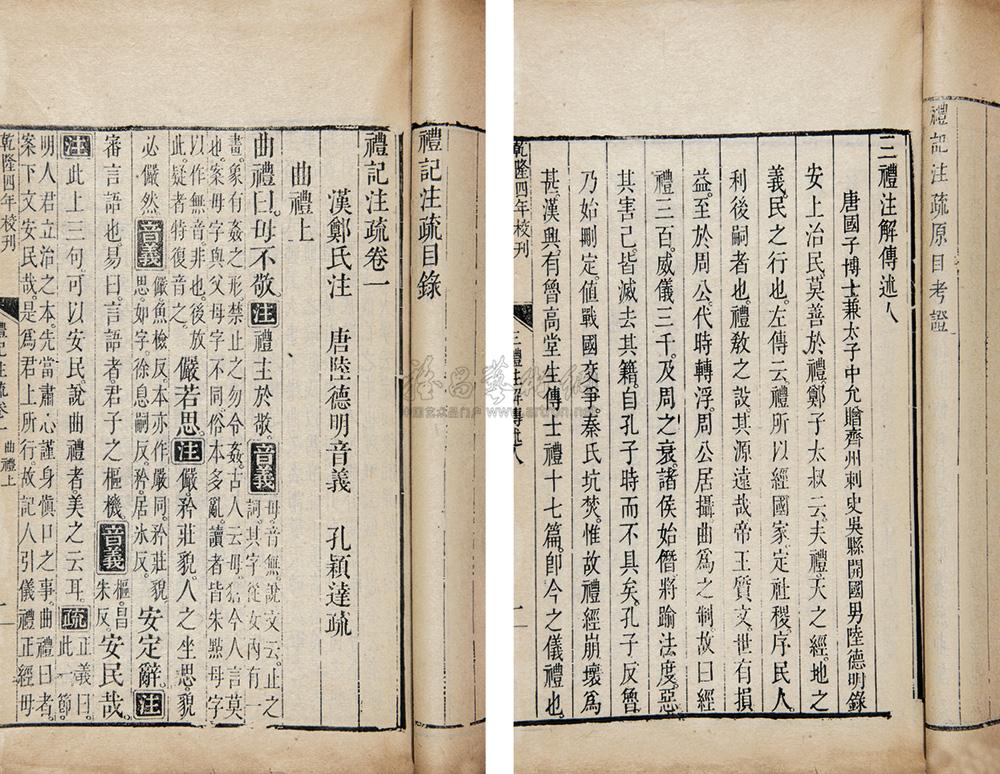 禮記注疏原目考證
三禮注解傳述人
唐國子博士兼太子中允贈齊州刺史吳縣開國男陸德明錄
安上治民莫善於禮鄭子太叔云夫禮天之經地之
義民之行也左傳云禮所以經國家定社稷序民人
利後嗣者也禮教之設其源遠哉帝王質文世有損
益至於周公代時轉浮周公居攝曲爲之制故曰經
禮三百威儀三千及周之衰諸侯始僭將踰法度惡
其害己皆滅去其籍自孔子時而不具矣孔子反魯
乃始刪定值戰國交爭秦氏坑焚惟故禮經崩壞爲
甚漢興有魯高堂生傳士禮十七篇即今之儀禮也
乾隆四年校刊
三禮注解傳述人
一
禮記注疏目錄
禮記注疏卷一
漢鄭氏注 唐陸德明音義 孔穎達疏
曲禮上
曲禮曰毋不敬注禮主於敬音義毋音無說文云止之
詞其字從女內有一
畫象有姦之形禁止之勿令姦古人云毋猶今人言莫
也案毋字與父母字不同俗本多亂讀者皆朱點母字
以作無音非也後放
此疑者特復音之
儼若思注儼矜莊貌人之坐思貌
必儼然音義儼魚檢反本亦作嚴同矜莊貌
思如字徐息嗣反矜居氷反
安定辭注
審言語也易曰言語者君子之樞機音義樞昌
朱反
安民哉
注此上三句可以安民說曲禮者美之云耳疏正義曰
此一節
明人君立治之本先當肅心謹身慎口之事曲禮曰者
案下文安民哉是爲君上所行故記人引儀禮正經毋
乾隆四年校刊
禮記注疏卷一
曲禮上
一